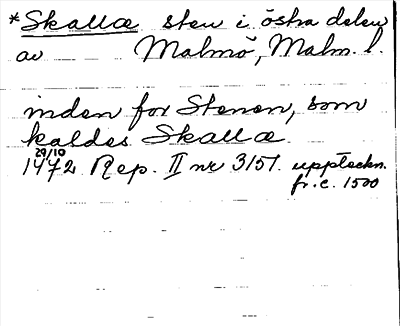 *Skallæ sten i östra delen
av Malmö, Malm. l.
inden for Stenen, som
kaldes Skallæ
29/10
1472 Rep. II nr 3157. uppteckn.
fr. c. 1500